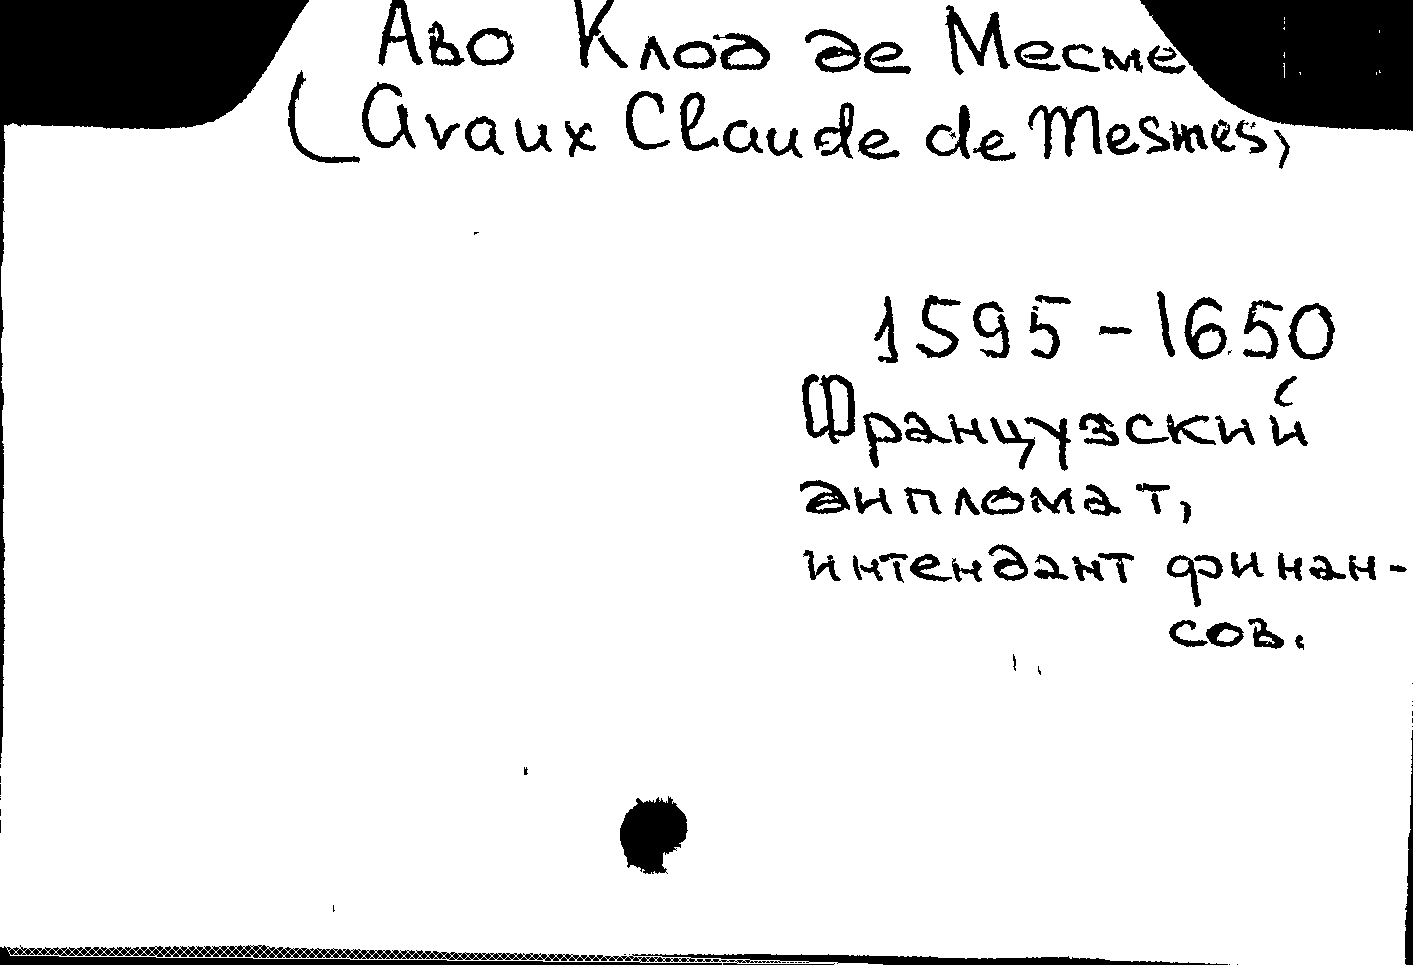 Аво Клод де Месме
(Avaux Claude de Mesmes,
1595-1650
Французский
дипломат,
интендант финан-
сов.